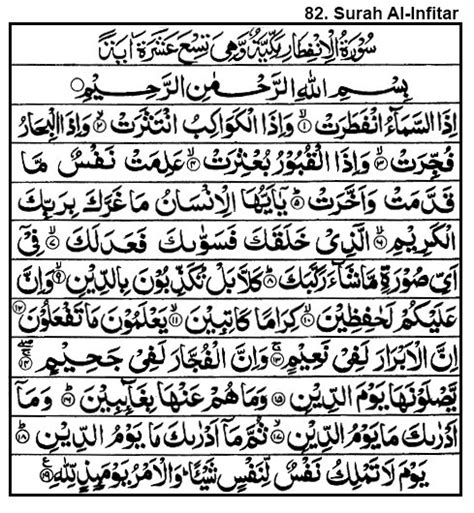 82. Surah Al-Infitar
سُوْرَةُ الْاِنْفِطَارِ مَكِّيَّةٌ وَّهِىَ تِسْعَ عَشَرَةَ اٰيَةً
بِسْمِ اللّٰهِ الرَّحْمٰنِ الرَّحِيْمِ
اِذَا السَّمَآءُ انْفَطَرَتْ ۙ‏﴿۱﴾ وَاِذَا الْكَوَاكِبُ انْتَثَرَتْ ۙ‏﴿۲﴾ وَاِذَا الْبِحَارُ
فُجِّرَتْ ۙ‏﴿۳﴾ وَاِذَا الْقُبُوْرُ بُعْثِرَتْ ۙ‏﴿۴﴾ عَلِمَتْ نَفْسٌ مَّا
قَدَّمَتْ وَاَخَّرَتْ ؕ‏﴿۵﴾ يٰۤاَيُّهَا الْاِنْسَانُ مَا غَرَّكَ بِرَبِّكَ
الْكَرِيْمِ ۙ‏﴿۶﴾ الَّذِىْ خَلَقَكَ فَسَوّٰٮكَ فَعَدَلَكَ ۙ‏﴿۷﴾ فِىْۤ
اَىِّ صُوْرَةٍ مَّا شَآءَ رَكَّبَكَ ؕ‏﴿۸﴾ كَلَّا بَلْ تُكَذِّبُوْنَ بِالدِّيْنِ ۙ‏﴿۹﴾ وَاِنَّ
عَلَيْكُمْ لَحٰفِظِيْنَ ۙ‏﴿۱۰﴾ كِرَامًا كَاتِبِيْنَ ۙ‏﴿۱۱﴾ يَعْلَمُوْنَ مَا تَفْعَلُوْنَ ‏﴿۱۲﴾
اِنَّ الْاَبْرَارَ لَفِىْ نَعِيْمٍ ۚ‏﴿۱۳﴾ وَاِنَّ الْفُجَّارَ لَفِىْ جَحِيْمٍ ۚ‏﴿۱۴﴾
يَّصْلَوْنَهَا يَوْمَ الدِّيْنِ ‏﴿۱۵﴾ وَمَا هُمْ عَنْهَا بِغَآٮِٕبِيْنَ ؕ‏﴿۱۶﴾ وَمَاۤ
اَدْرٰٮكَ مَا يَوْمُ الدِّيْنِ ۙ‏﴿۱۷﴾ ثُمَّ مَاۤ اَدْرٰٮكَ مَا يَوْمُ الدِّيْنِ ؕ‏﴿۱۸﴾
يَوْمَ لَا تَمْلِكُ نَفْسٌ لِّنَفْسٍ شَيْـًٔا ؕ وَالْاَمْرُ يَوْمَٮِٕذٍ لِّلّٰهِ ‏﴿۱۹﴾